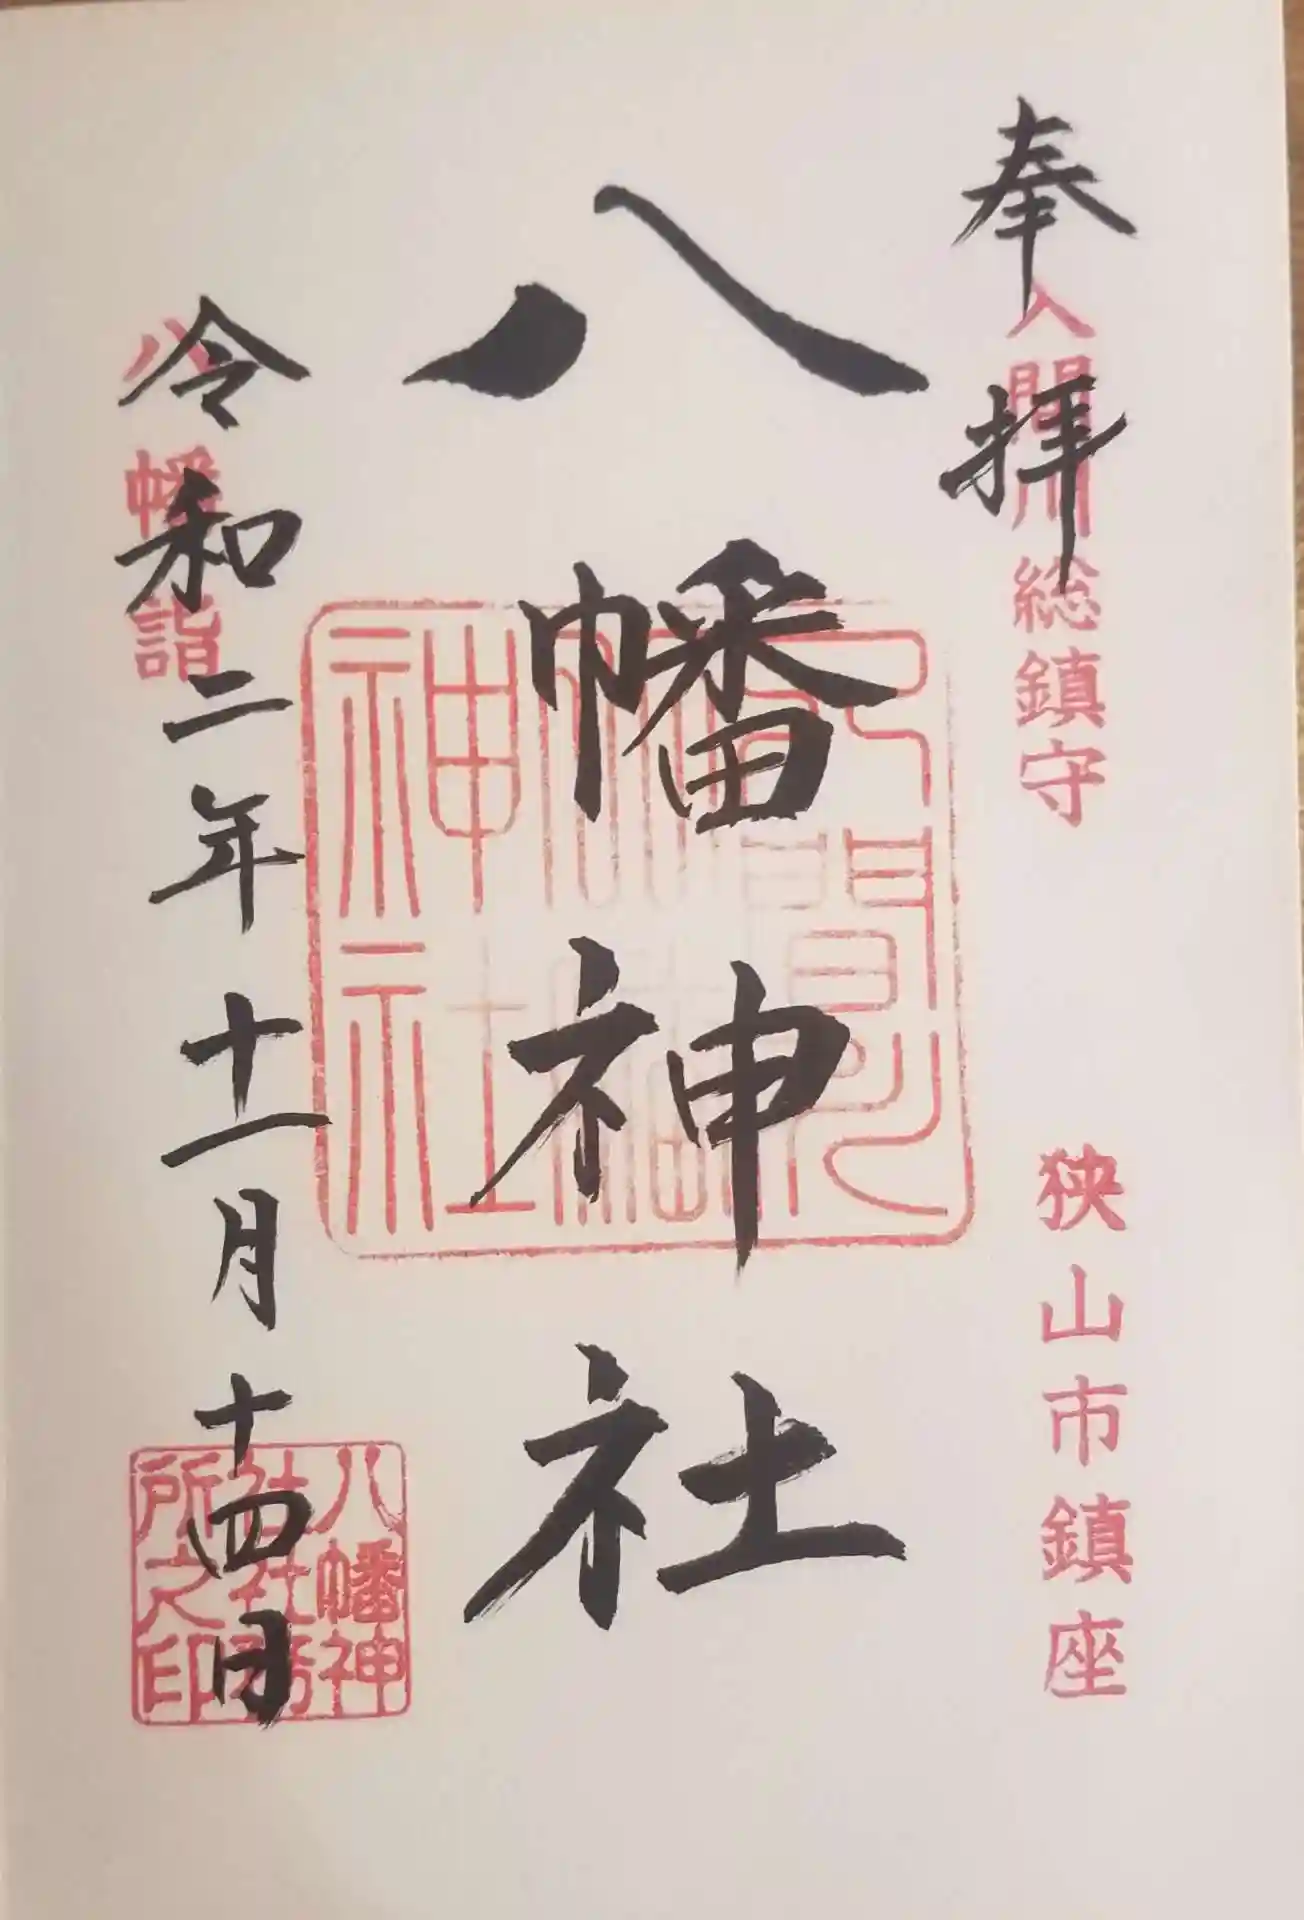 奉拝
入間川総鎮守
狭山市鎮座
八幡神社
入間川八幡神社
令和二年十一月十四日
八幡詣
八幡神社社務所之印